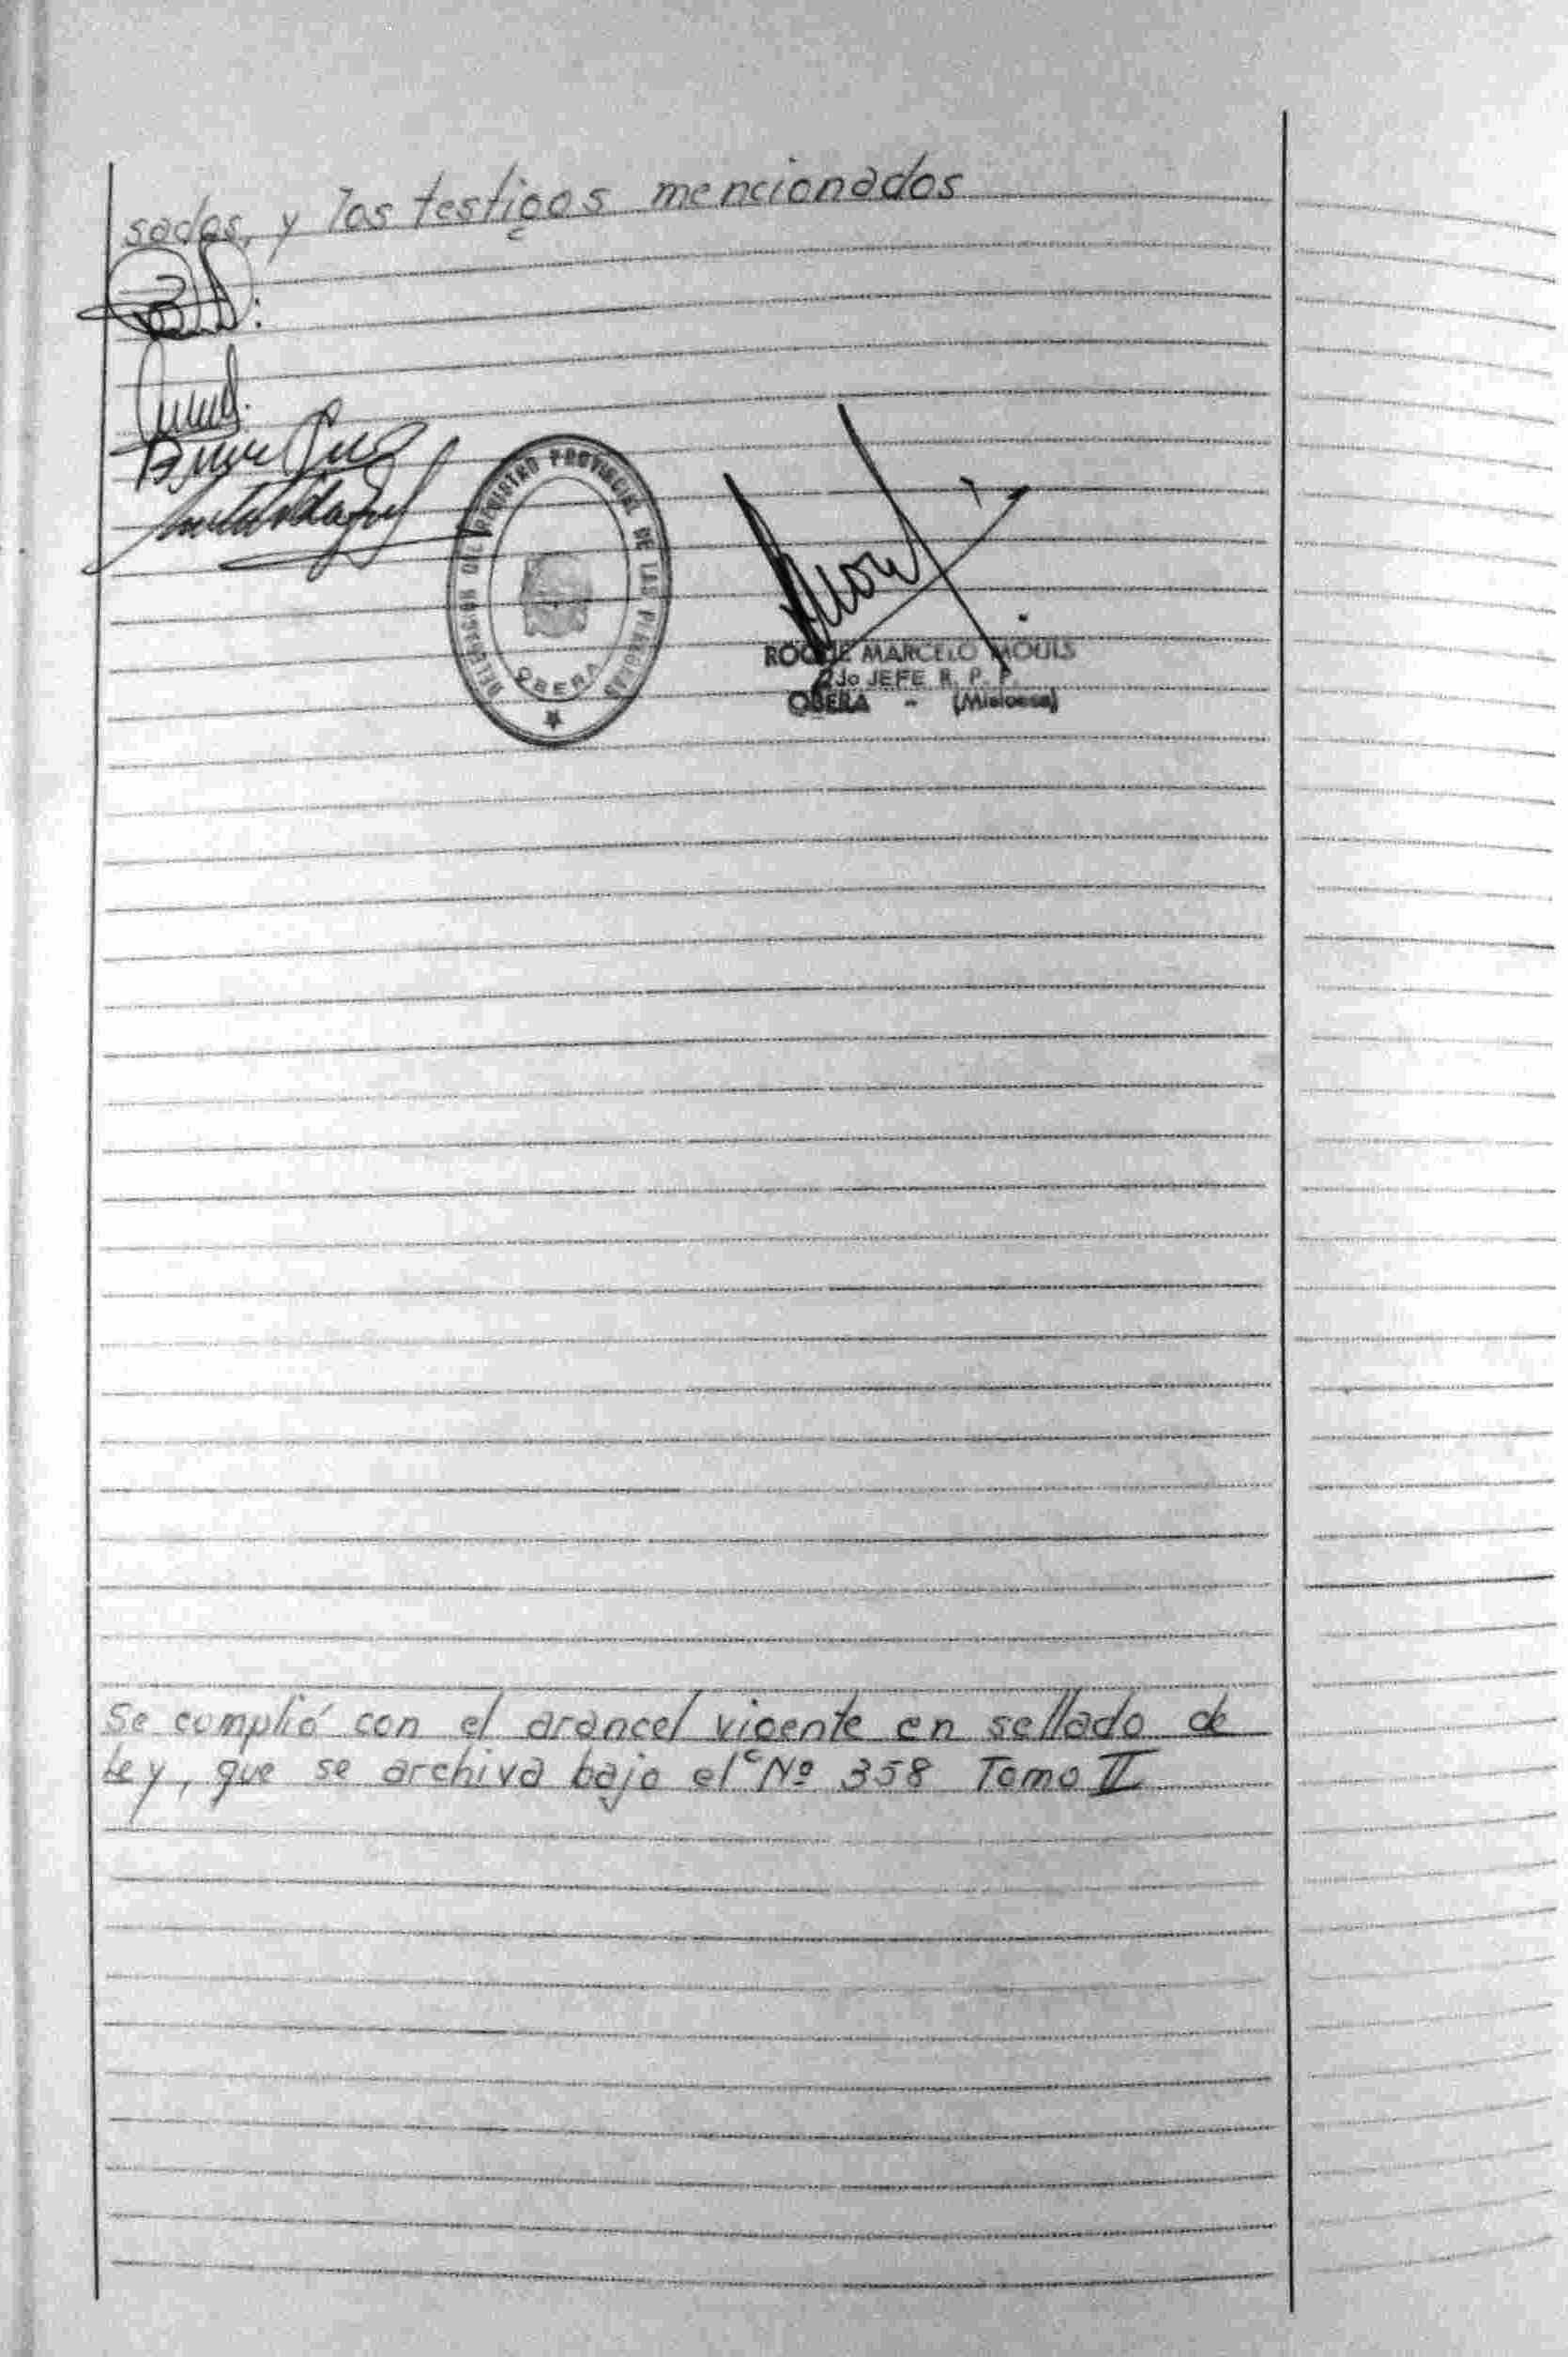 sados, y los testigos mencionados
DELEGACION DEL REGISTRO PROVINCIAL DE LAS PERSONAS
OBERA
ROQUE MARCELO MOULS
2do JEFE R. P. P.
OBERA - (Misiones)
Se cumplió con el arancel vigente en sellado de
Ley, que se archiva bajo el Nº 358 Tomo II